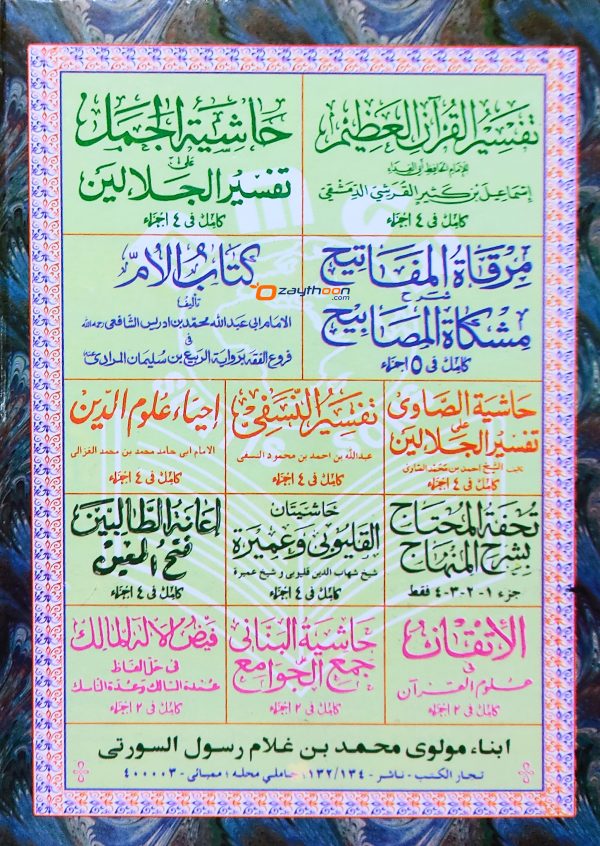 تفسير القرآن العظيم
للامام الحافظ أبي الفداء
إسماعيل بن كثير القرشي الدمشقي
كامل فى ٤ اجزاء
حاشية الجمل
على
تفسير الجلالين
كامل فى ٤ اجزاء
مرقاة المفاتيح
شرح
مشكاة المصابيح
كامل فى ٥ اجزاء
كتاب الأم
تأليف
الامام ابى عبدالله محمد بن ادريس الشافعى رحمه الله
فى
فروع الفقه برواية الربيع بن سليمان المرادى
Ozaythoon
.com
حاشية الصاوى
على
تفسير الجلالين
الشيخ احمد بن محمد الصاوى
كامل فى ٤ اجزاء
تفسير النسفى
عبدالله بن احمد بن محمود السفى
كامل فى ٤ اجزاء
إحياء علوم الدين
الامام ابى حامد محمد بن محمد الغزالى
كامل فى ٤ اجزاء
تحفة المحتاج
بشرح المنهاج
جزء ١-٢-٣-٤ فقط
حاشيتان
القليوبى وعميرة
شيخ شهاب الدين قليوبى و شيخ عميرة
كامل فى ٤ اجزاء
إعانة الطالبين
فتح المعين
كامل فى ٤ اجزاء
الإتقان
فى
علوم القرآن
كامل فى ٢ اجزاء
حاشية البنانى
جمع الجوامع
كامل فى ٢ اجزاء
فيض الإله المالك
فى حل الفاظ
عمدة السالك وعدة الناسك
كامل فى ٢ اجزاء
ابناء مولوى محمد بن غلام رسول السورتى
تجار الكتب - ناشر - ١٣٢/١٣٤، جاملي محله ؛ ممبائى - ٤٠٠٠٠٣